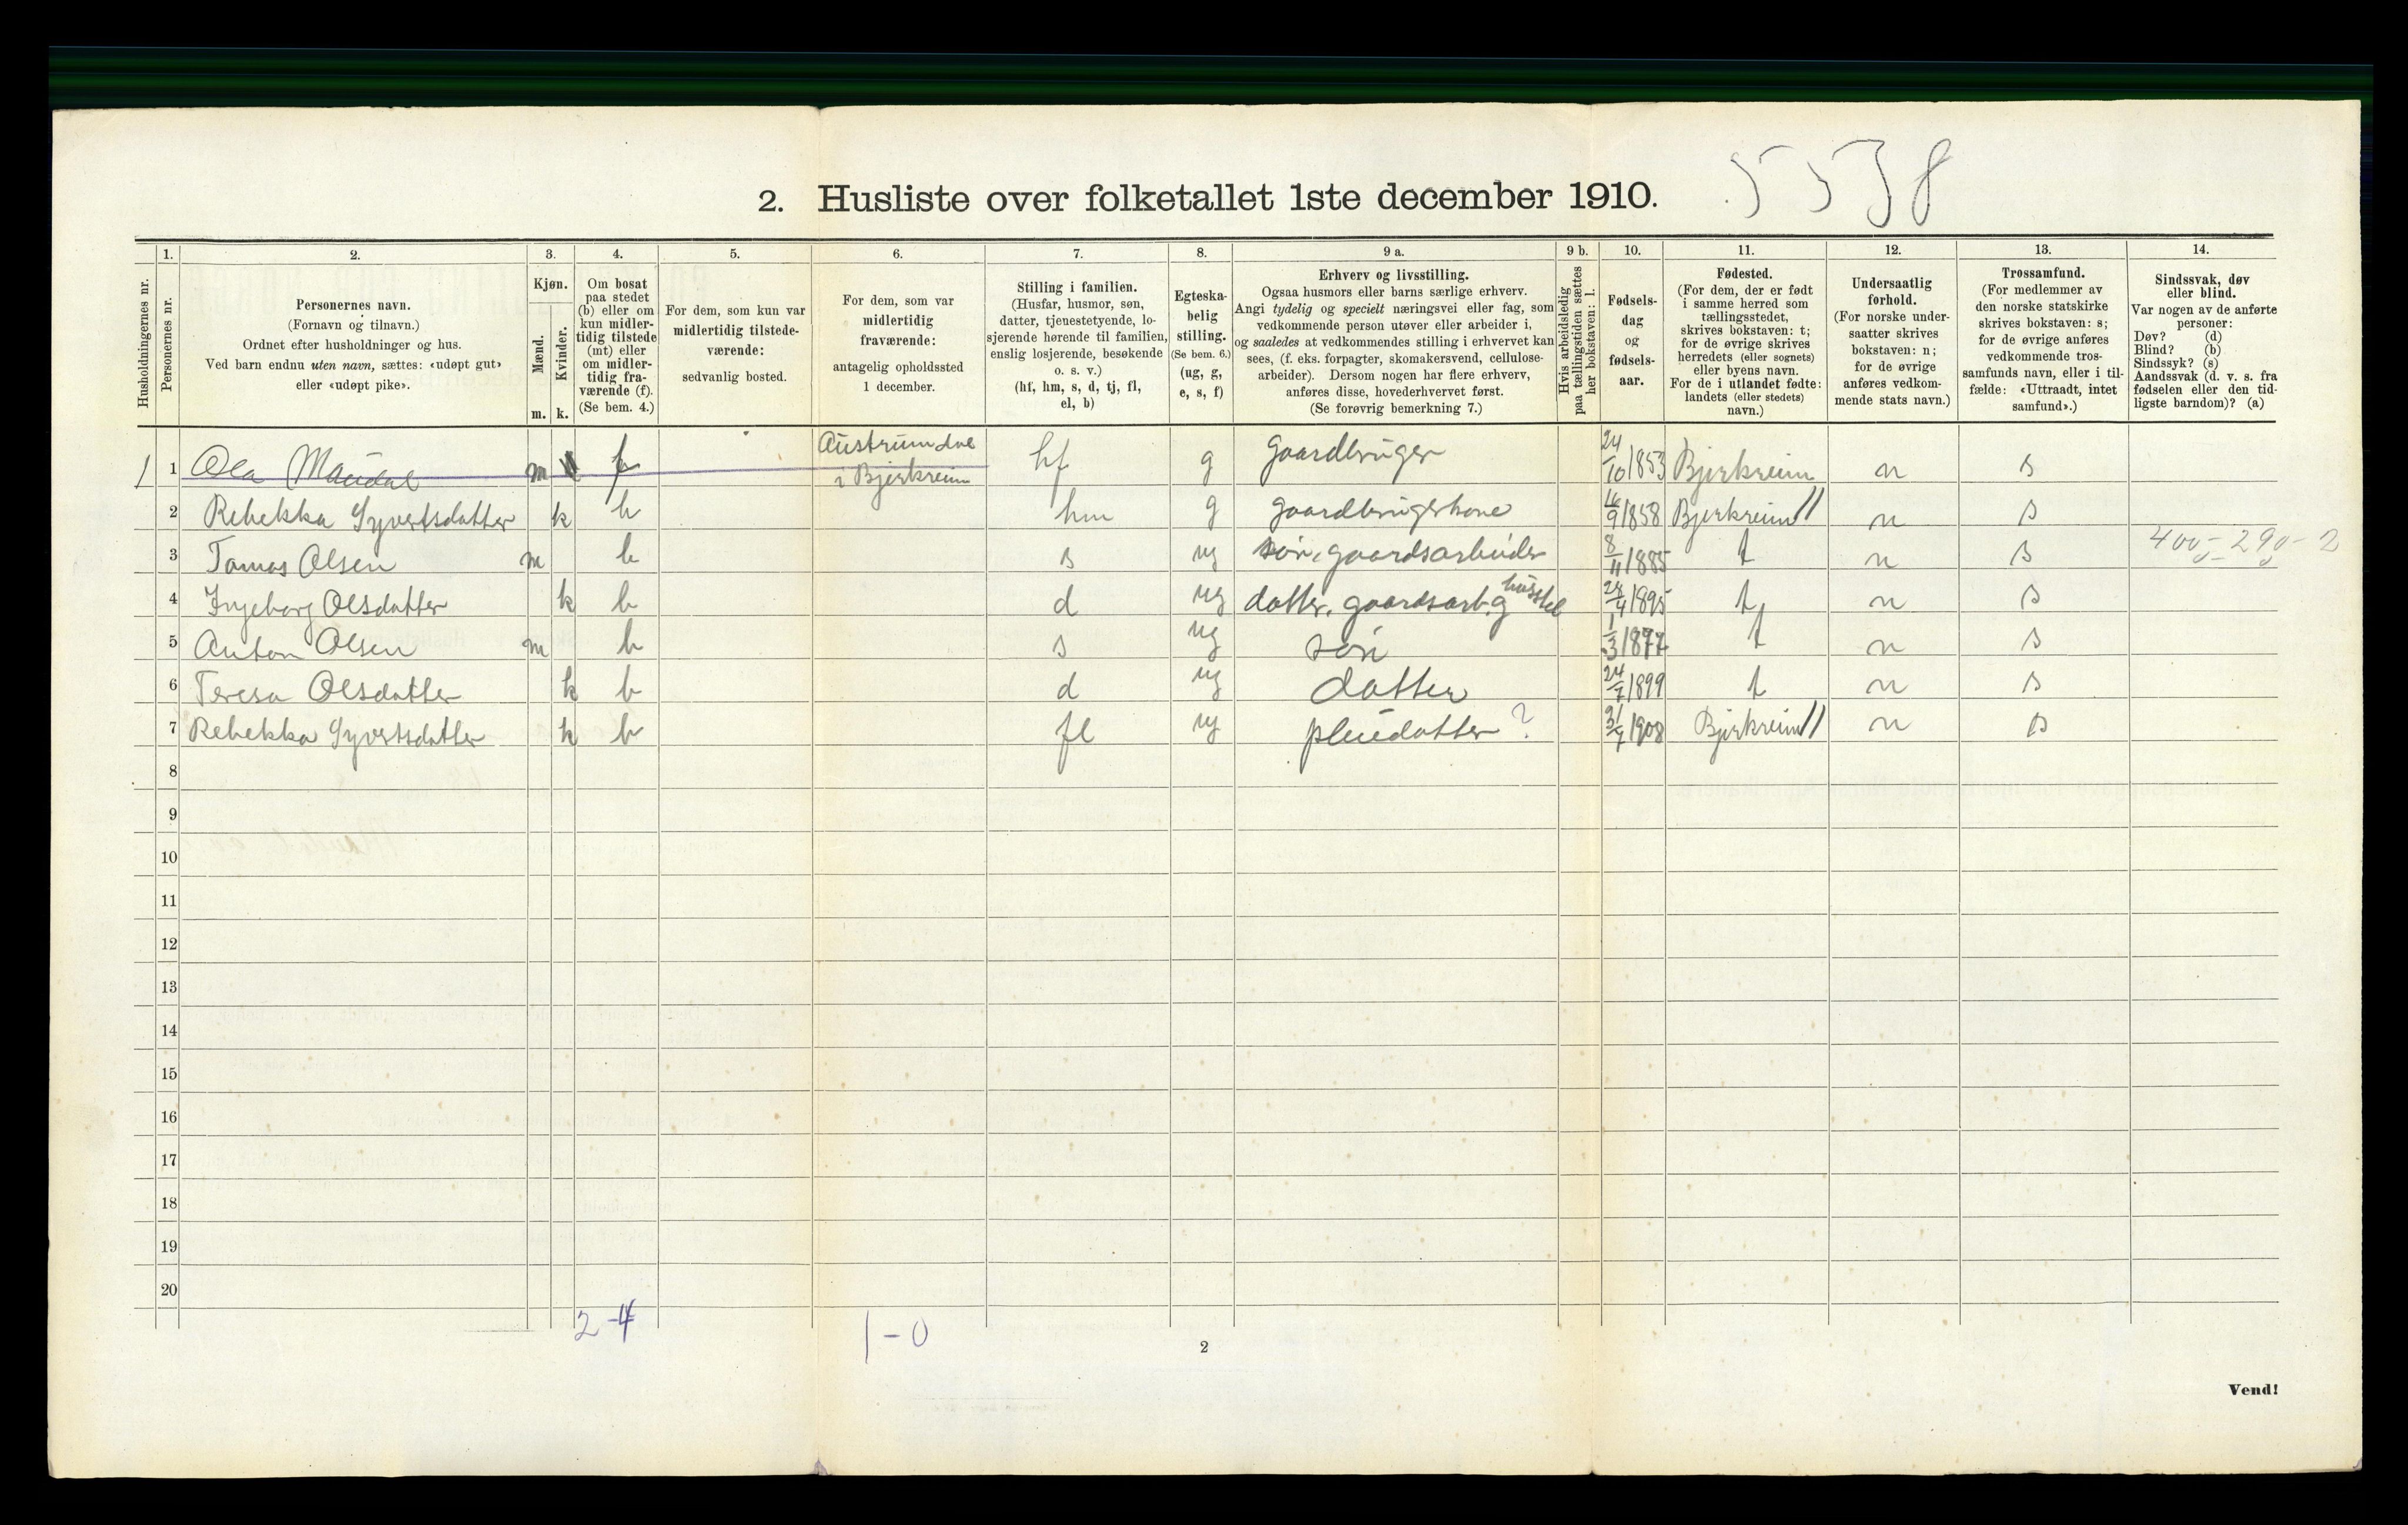 5538
2. Husliste over folketallet 1ste december 1910.
Husholdningernes nr.
1.
Personernes nr.
2.
Personernes navn.
(Fornavn og tilnavn.)
Ordnet efter husholdninger og hus.
Ved barn endnu uten navn, sættes: «udøpt gut»
eller «udøpt pike».
3.
Kjøn.
Mænd.
m.
Kvinder.
k.
4.
Om bosat
paa stedet
(b) eller om
kun midler-
tidig tilstede
(mt) eller
om midler-
tidig fra-
værende (f).
(Se bem. 4.)
5.
For dem, som kun var
midlertidig tilstede-
værende:
sedvanlig bosted.
6.
For dem, som var
midlertidig
fraværende:
antagelig opholdssted
1 december.
7.
Stilling i familien.
(Husfar, husmor, søn,
datter, tjenestetyende, lo-
sjerende hørende til familien,
enslig losjerende, besøkende
o. s. v.)
(hf, hm, s, d, tj, fl,
el, b)
8.
Egteska-
belig
stilling.
(Se bem. 6.)
(ug, g,
e, s, f)
9 a.
Erhverv og livsstilling.
Ogsaa husmors eller barns særlige erhverv.
Angi tydelig og specielt næringsvei eller fag, som
vedkommende person utøver eller arbeider i,
og saaledes at vedkommendes stilling i erhvervet kan
sees, (f. eks. forpagter, skomakersvend, cellulose-
arbeider). Dersom nogen har flere erhverv,
anføres disse, hovederhvervet først.
(Se forøvrig bemerkning 7.)
9 b.
Hvis arbeidsledig
paa tællingstiden sættes
her bokstaven: l.
10.
Fødsels-
dag
og
fødsels-
aar.
11.
Fødested.
(For dem, der er født
i samme herred som
tællingsstedet,
skrives bokstaven: t;
for de øvrige skrives
herredets (eller sognets)
eller byens navn.
For de i utlandet fødte:
landets (eller stedets)
navn.)
12.
Undersaatlig
forhold.
(For norske under-
saatter skrives
bokstaven: n;
for de øvrige
anføres vedkom-
mende stats navn.)
13.
Trossamfund.
(For medlemmer av
den norske statskirke
skrives bokstaven: s;
for de øvrige anføres
vedkommende tros-
samfunds navn, eller i til-
fælde: «Uttraadt, intet
samfund».)
14.
Sindssvak, døv
eller blind.
Var nogen av de anførte
personer:
Døv? (d)
Blind? (b)
Sindssyk? (s)
Aandssvak (d. v. s. fra
fødselen eller den tid-
ligste barndom)? (a)
1 1 Ola Maudal m f Austrumdal i Bjerkreim hf g gaardbruger 24/10 1853 Bjerkreim n s
2 Rebekka Syvertsdatter k b hm g gaardbrugerkone 16/9 1858 Bjerkreim // n s
3 Tomas Olsen m b s ug søn, gaardsarbeider 8/11 1885 t n s 400-290-2
4 Ingeborg Olsdatter k b d ug datter, gaardsarb. g husstel 28/4 1895 t n s
5 Anton Olsen m b s ug søn 1/3 1897 t n s
6 Teresa Olsdatter k b d ug datter 24/7 1899 t n s
7 Rebekka Syvertsdatter k b fl ug pleiedatter ? 31/7 1908 Bjerkreim // n s
8
9
10
11
12
13
14
15
16
17
18
19
20
2-4
1-0
2
Vend!